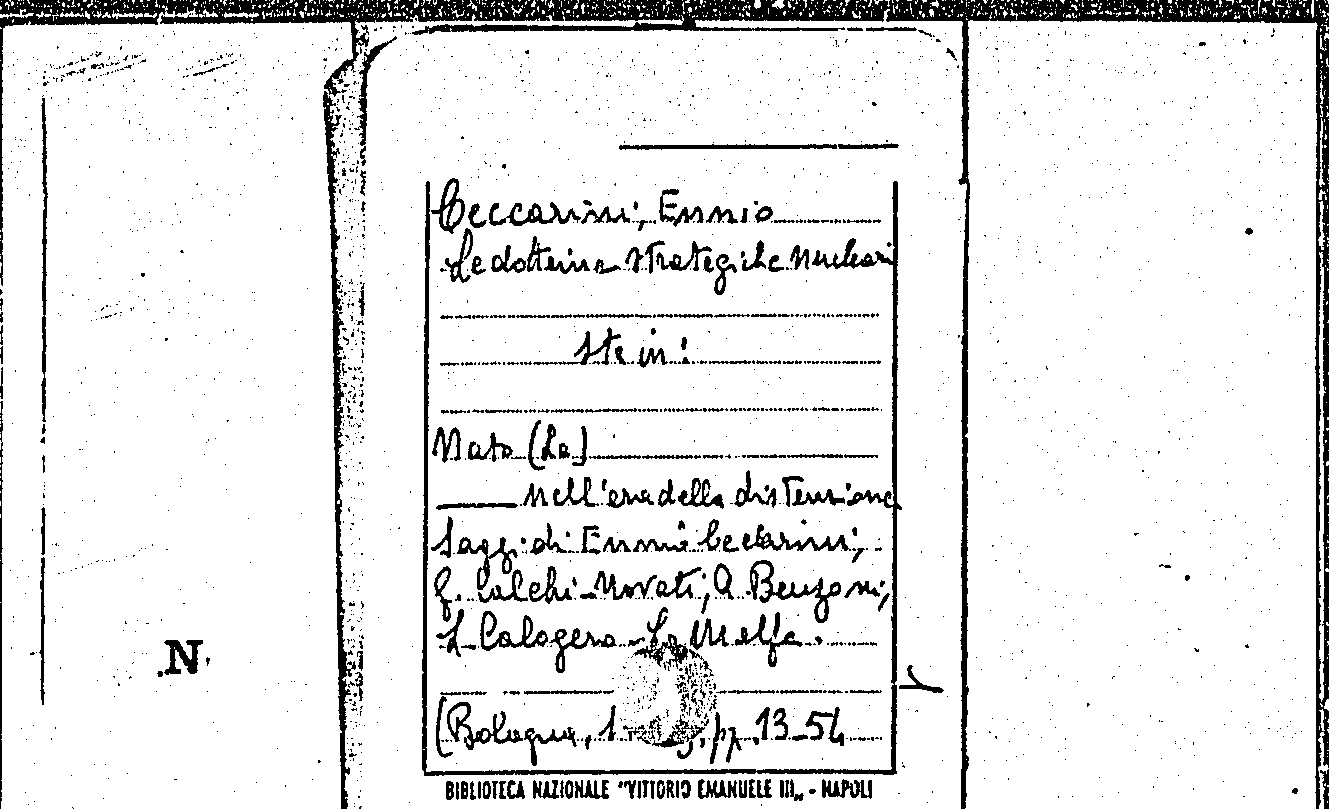 Ceccarini, Ennio
Le dottrine strategiche nucleari
Sta in:
Nato (La)
nell'era della distensione
Saggi di Ennio Ceccarini,
G. Calchi-Novati, A Benzoni,
L Calogero-La Malfa.
(Bologna, 1 pp. 13-54
N
BIBLIOTECA NAZIONALE "VITTORIO EMANUELE III„ - NAPOLI